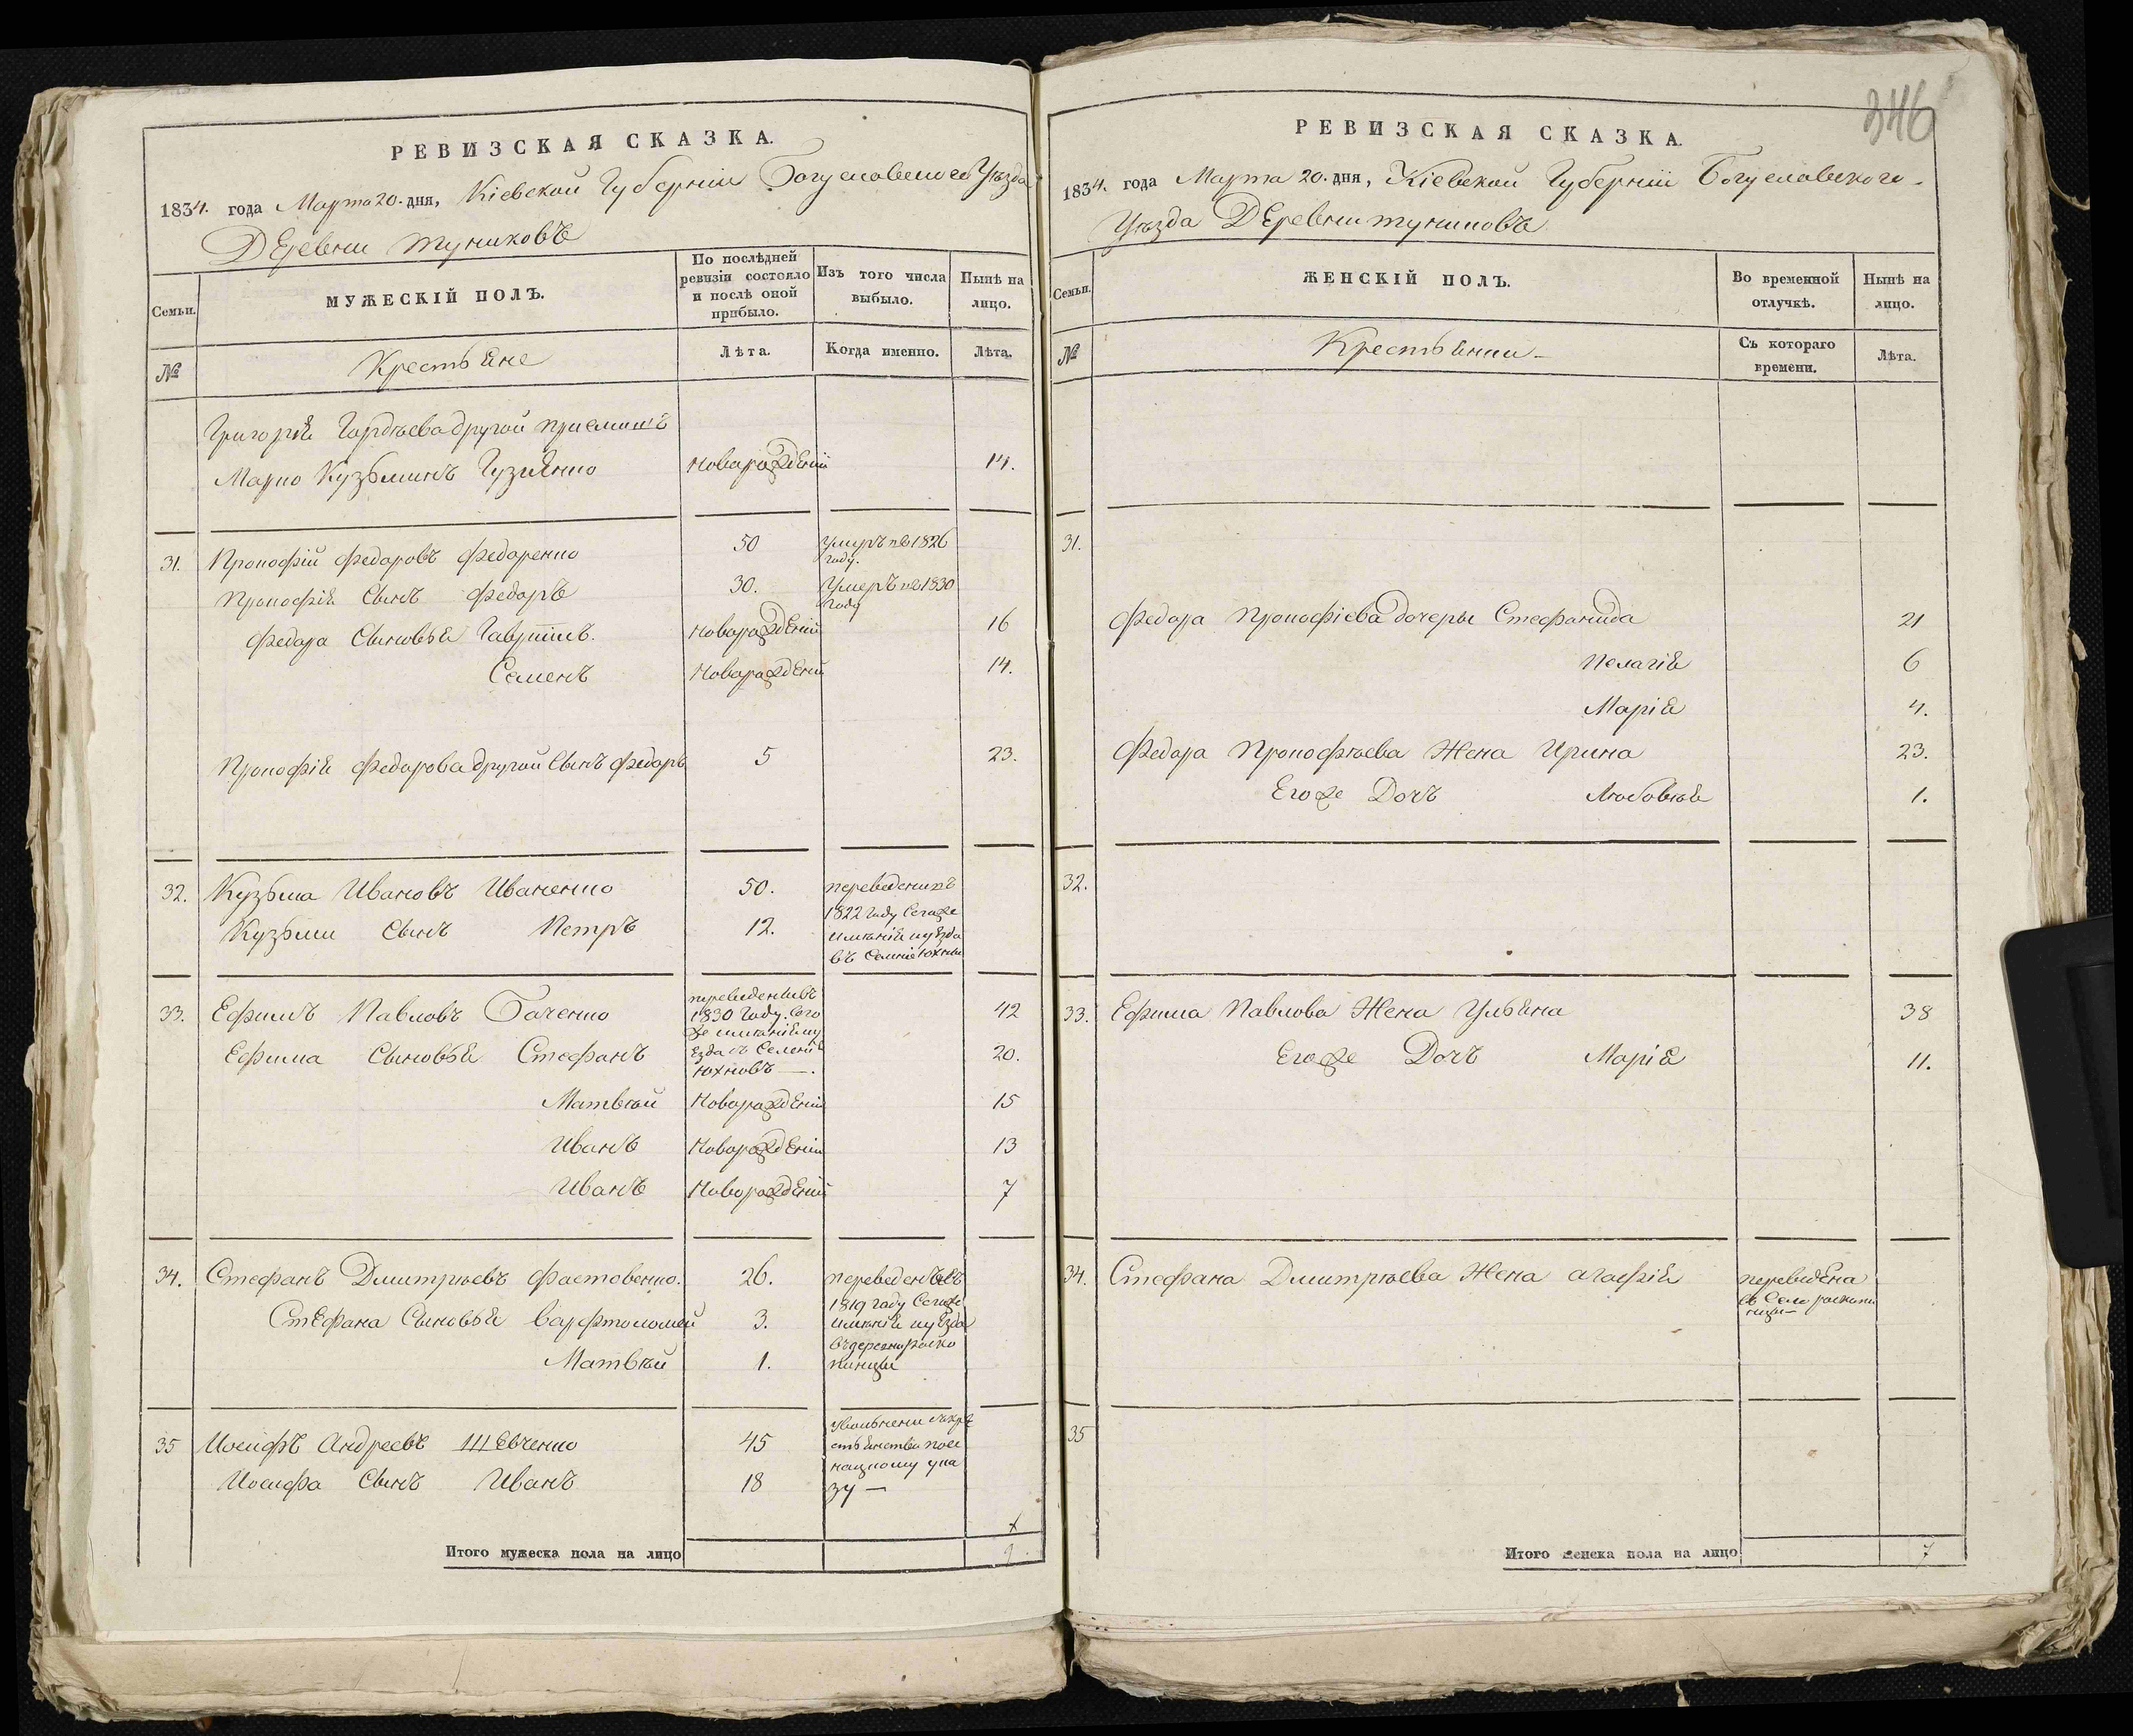 РЕВИЗСКАЯ СКАЗКА.
1834. года Марта 20. дня, Кіевской Губерніи Богуславского Уѣзда
Деревни Туниковъ
Семьи.
МУЖЕСКІЙ ПОЛЪ.
По послѣдней ревизіи состояло и послѣ оной прибыло.
Изъ того числа выбыло.
Нынѣ на лицо.
№
Крестьяне
Лѣта.
Когда именно.
Лѣта.
Григорія Гордѣева другой приемышъ
Марко Кузьминъ Гузиенко новорожденій 14.
31. Прокофій Федоровъ Федоренко 50 Умеръ въ 1826 году.
Прокофія Сынъ Федоръ 30. Умеръ въ 1830 году
Федора Сыновья Гаврiилъ. новорожденій 16
Семенъ Новорожденій 14.
Прокофія Федорова другой Сынъ Федоръ 5 23.
32. Кузьма Ивановъ Иваненко 50. переведени въ
Кузьми Сынъ Петръ 12. 1822 году Сегоже
имѣнія и уезда
въ Селеніе Юхни
33. Ефимъ Павловъ Баченко переведенъ въ 1830 году. Сего 42
же имѣнія и у
Ефима Сыновья Стефанъ езда съ Селенія 20.
Юхновъ —.
Матвѣй Новорожденій 15
Иванъ Новорожденій 13
Иванъ Новорожденій 7
34. Стефанъ Дмитріевъ Фастовенко. 26. переведенъ въ
Стефана Сыновья Варфтоломей 3. 1819 году Сегоже
имѣнія и уезда
Матвѣй 1. въ деревню
35 Иосифъ Андреевъ Шевченко 45 Увольнени съ кре
стьянства пое
Иосифа Сынъ Иванъ 18 ука
зу —
Итого мужеска пола на лицо
346
РЕВИЗСКАЯ СКАЗКА.
1834. года Марта 20. дня, Кіевской Губерніи Богуславского
Уѣзда Деревни Туниковъ
Семьи.
ЖЕНСКІЙ ПОЛЪ.
Во временной отлучкѣ.
Нынѣ на лицо.
№
Крестьянки
Съ котораго времени.
Лѣта.
31.
Федора Прокофіева дочеры Стефанида 21
Пелагія 6
Марія 4.
Федора Прокофѣева Жена Ирина 23.
Егоже Дочъ Любовія 1.
32.
33. Ефима Павлова Жена Ульяна 38
Егоже Дочъ Марія 11.
34. Стефана Дмитріева Жена Агафія переведена
въ Село
35
Итого женска пола на лицо 7